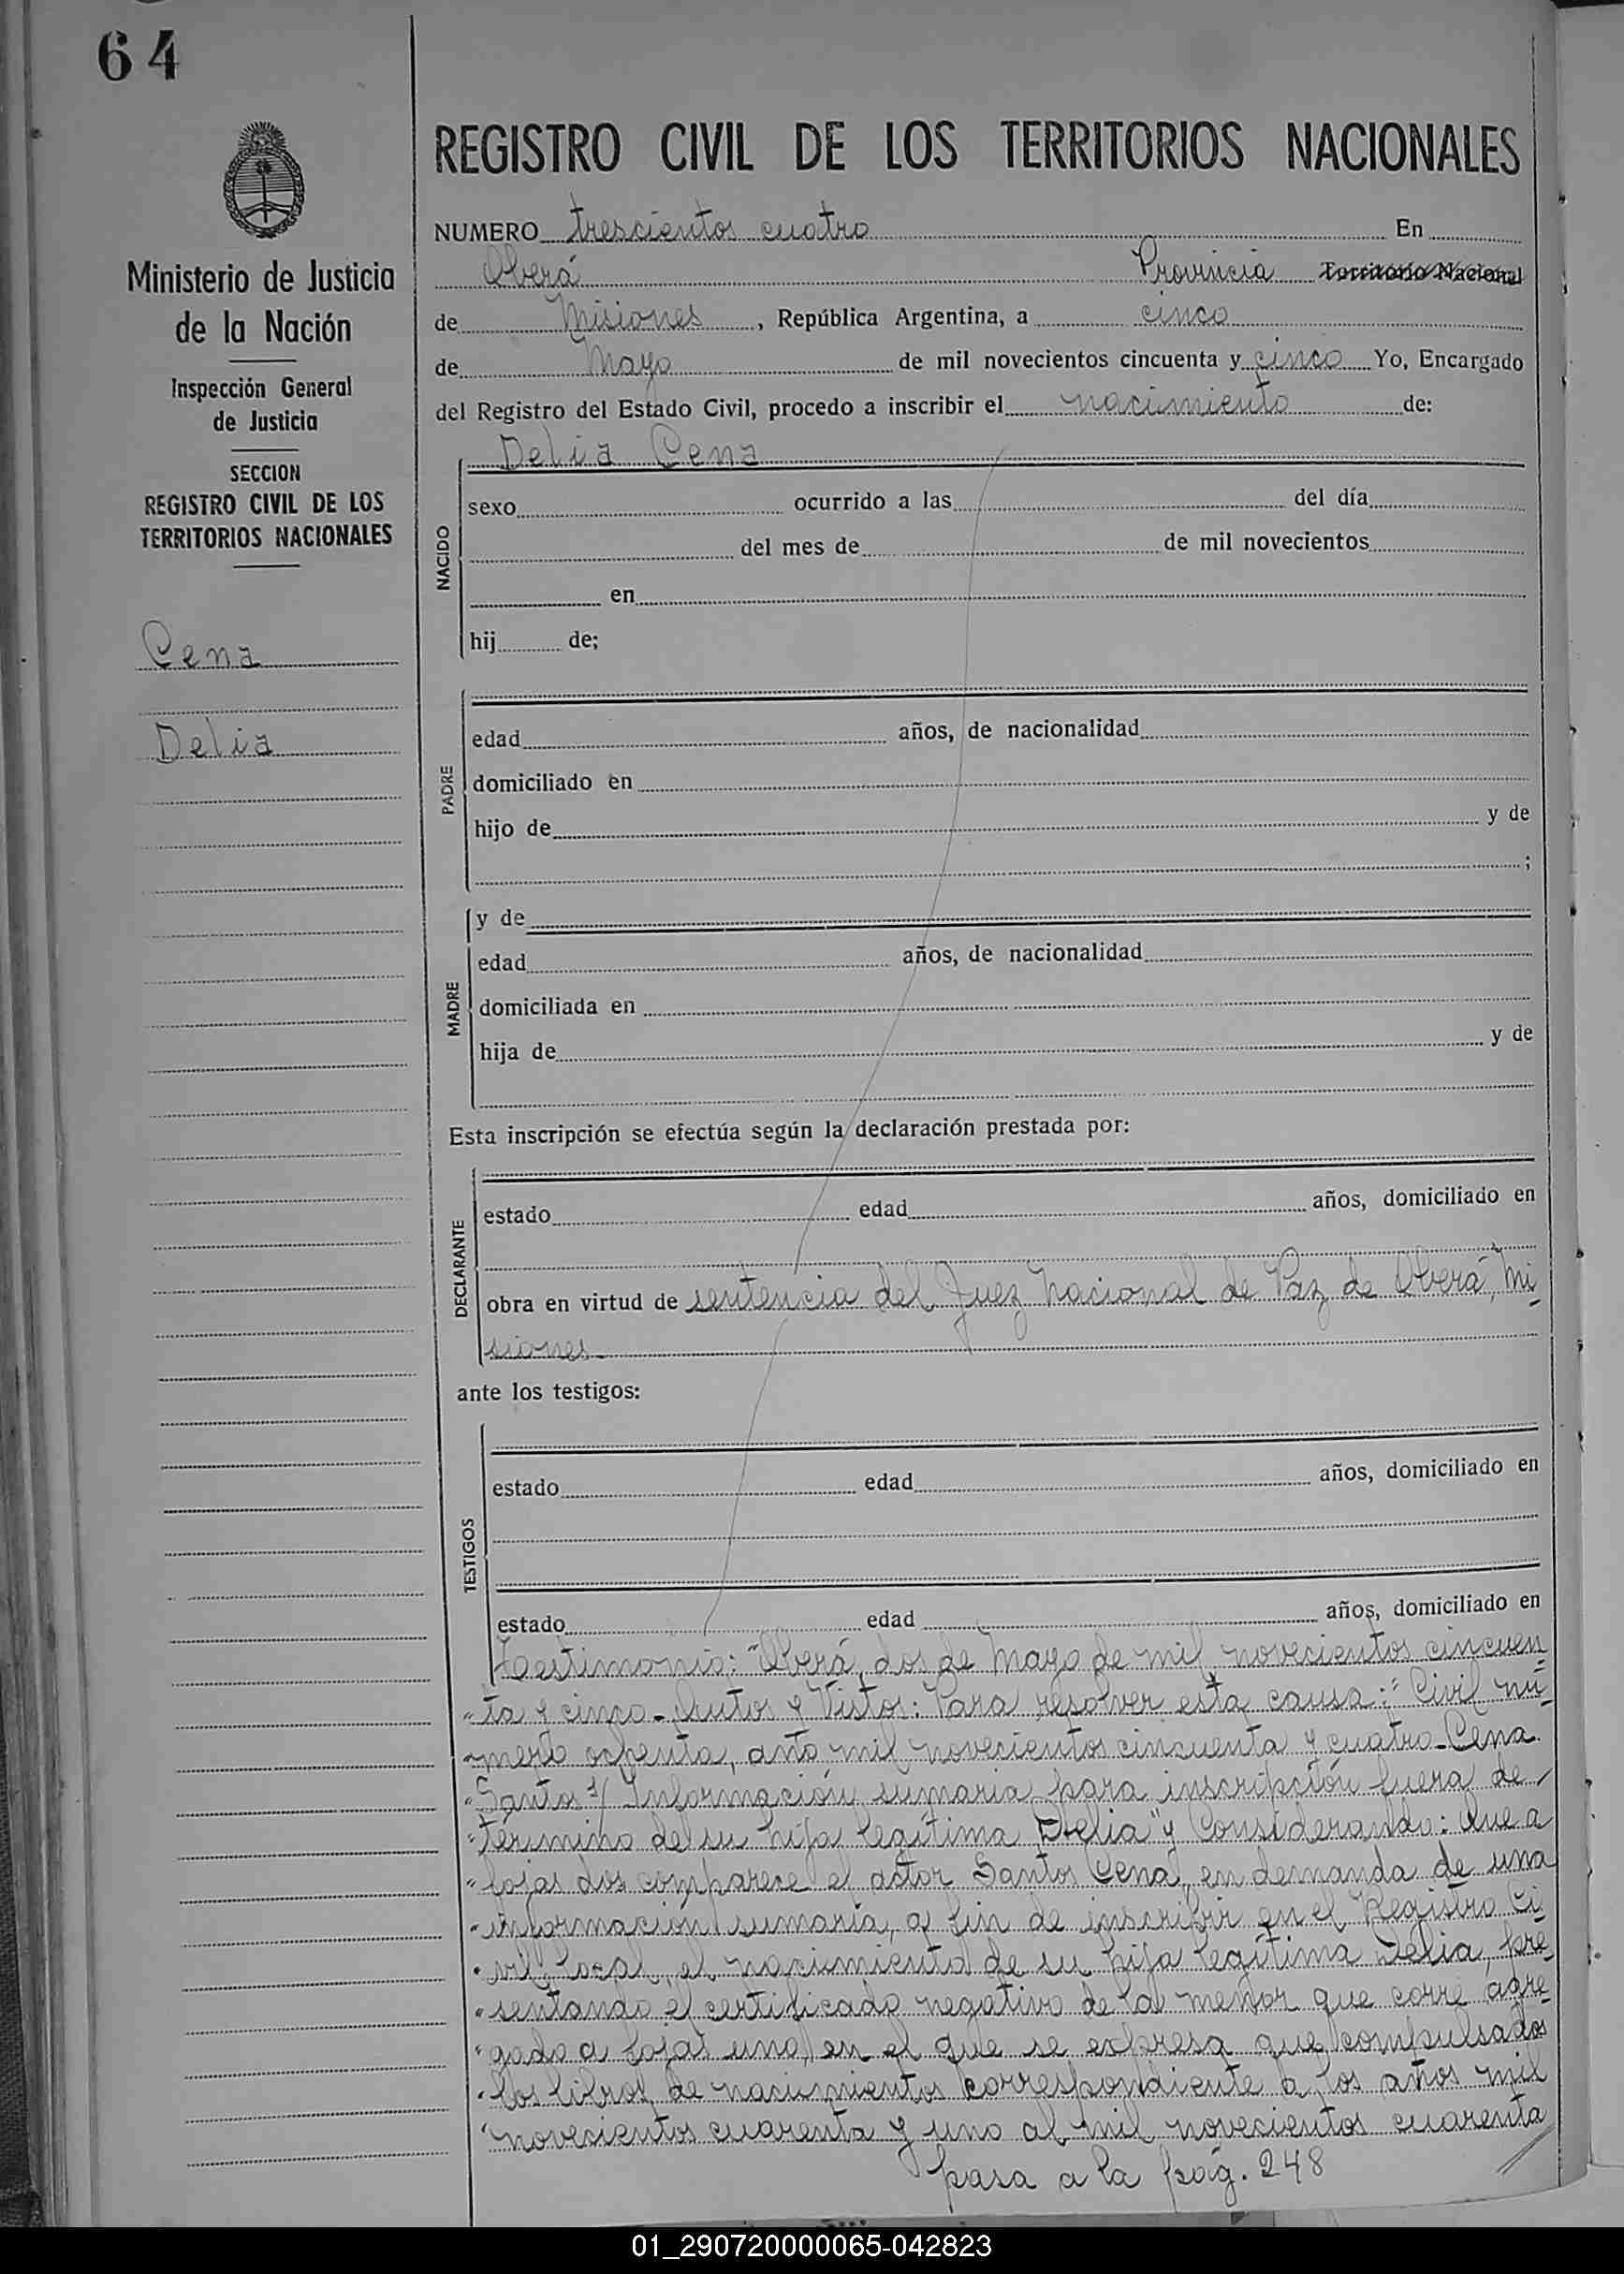 64
REGISTRO CIVIL DE LOS TERRITORIOS NACIONALES
Ministerio de Justicia
de la Nación
Inspección General
de Justicia
SECCION
REGISTRO CIVIL DE LOS
TERRITORIOS NACIONALES
Cena
Delia
NUMERO trescientos cuatro En
Oberá Provincia Territorio Nacional
de Misiones, República Argentina, a cinco
de Mayo de mil novecientos cincuenta y cinco Yo, Encargado
del Registro del Estado Civil, procedo a inscribir el nacimiento de:
Delia Cena
NACIDO
sexo ocurrido a las del día
del mes de de mil novecientos
en
hij de;
PADRE
edad años, de nacionalidad
domiciliado en
hijo de y de
;
MADRE
y de
edad años, de nacionalidad
domiciliada en
hija de y de
Esta inscripción se efectúa según la declaración prestada por:
DECLARANTE
estado edad años, domiciliado en
obra en virtud de sentencia del Juez Nacional de Paz de Oberá, Mi
siones.-
ante los testigos:
TESTIGOS
estado edad años, domiciliado en
estado edad años, domiciliado en
Testimonio: "Oberá, dos de Mayo de mil novecientos cincuen
"ta y cinco.- Autos y Vistos: Para resolver esta causa: "Civil nú
"mero ochenta, año mil novecientos cincuenta y cuatro- Cena
"Santos s/ Información sumaria para inscripción fuera de
"término de su hija legítima Delia" y Considerando: Que a
"fojas dos comparece el actor Santos Cena, en demanda de una
"información sumaria, a fin de inscribir en el Registro Ci
"vil local, el nacimiento de su hija legítima Delia, pre
"sentando el certificado negativo de la menor que corre agre
"gado a fojas uno, en el que se expresa que compulsados
"los libros de nacimientos correspondiente a los años mil
"novecientos cuarenta y uno al mil novecientos cuarenta
pasa a la pág. 248
01_290720000065-042823